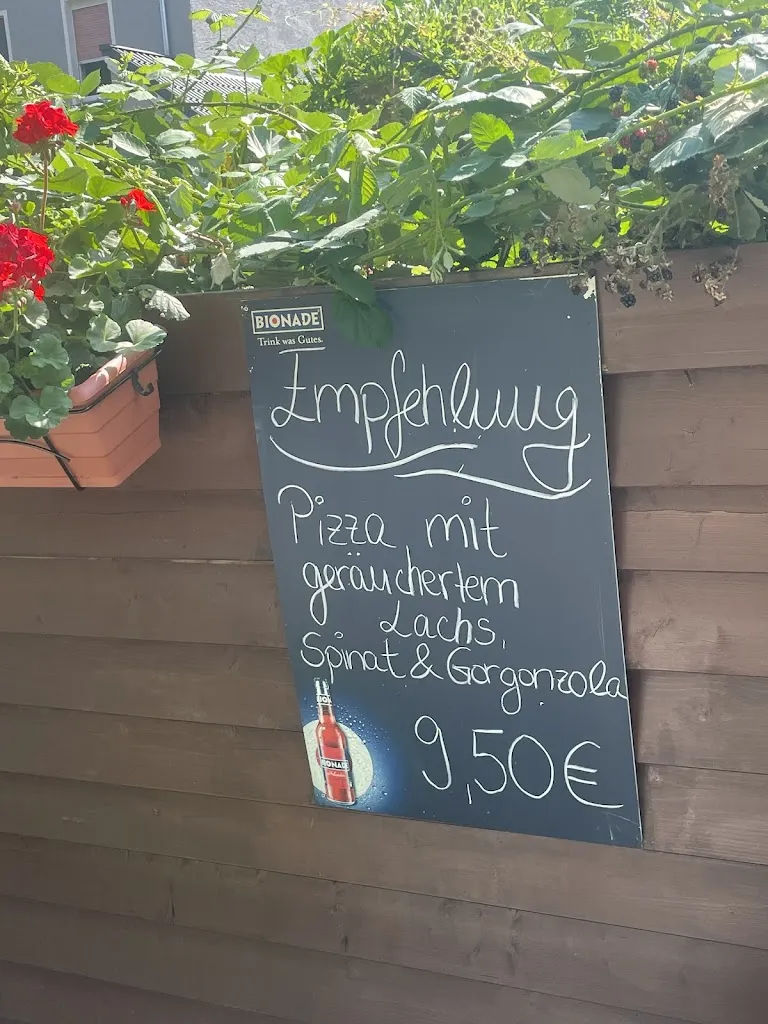 BIONADE
Trink was Gutes.
Empfehlung
Pizza mit
geräuchertem
Lachs,
Spinat & Gorgonzola
9,50€
BIONADE